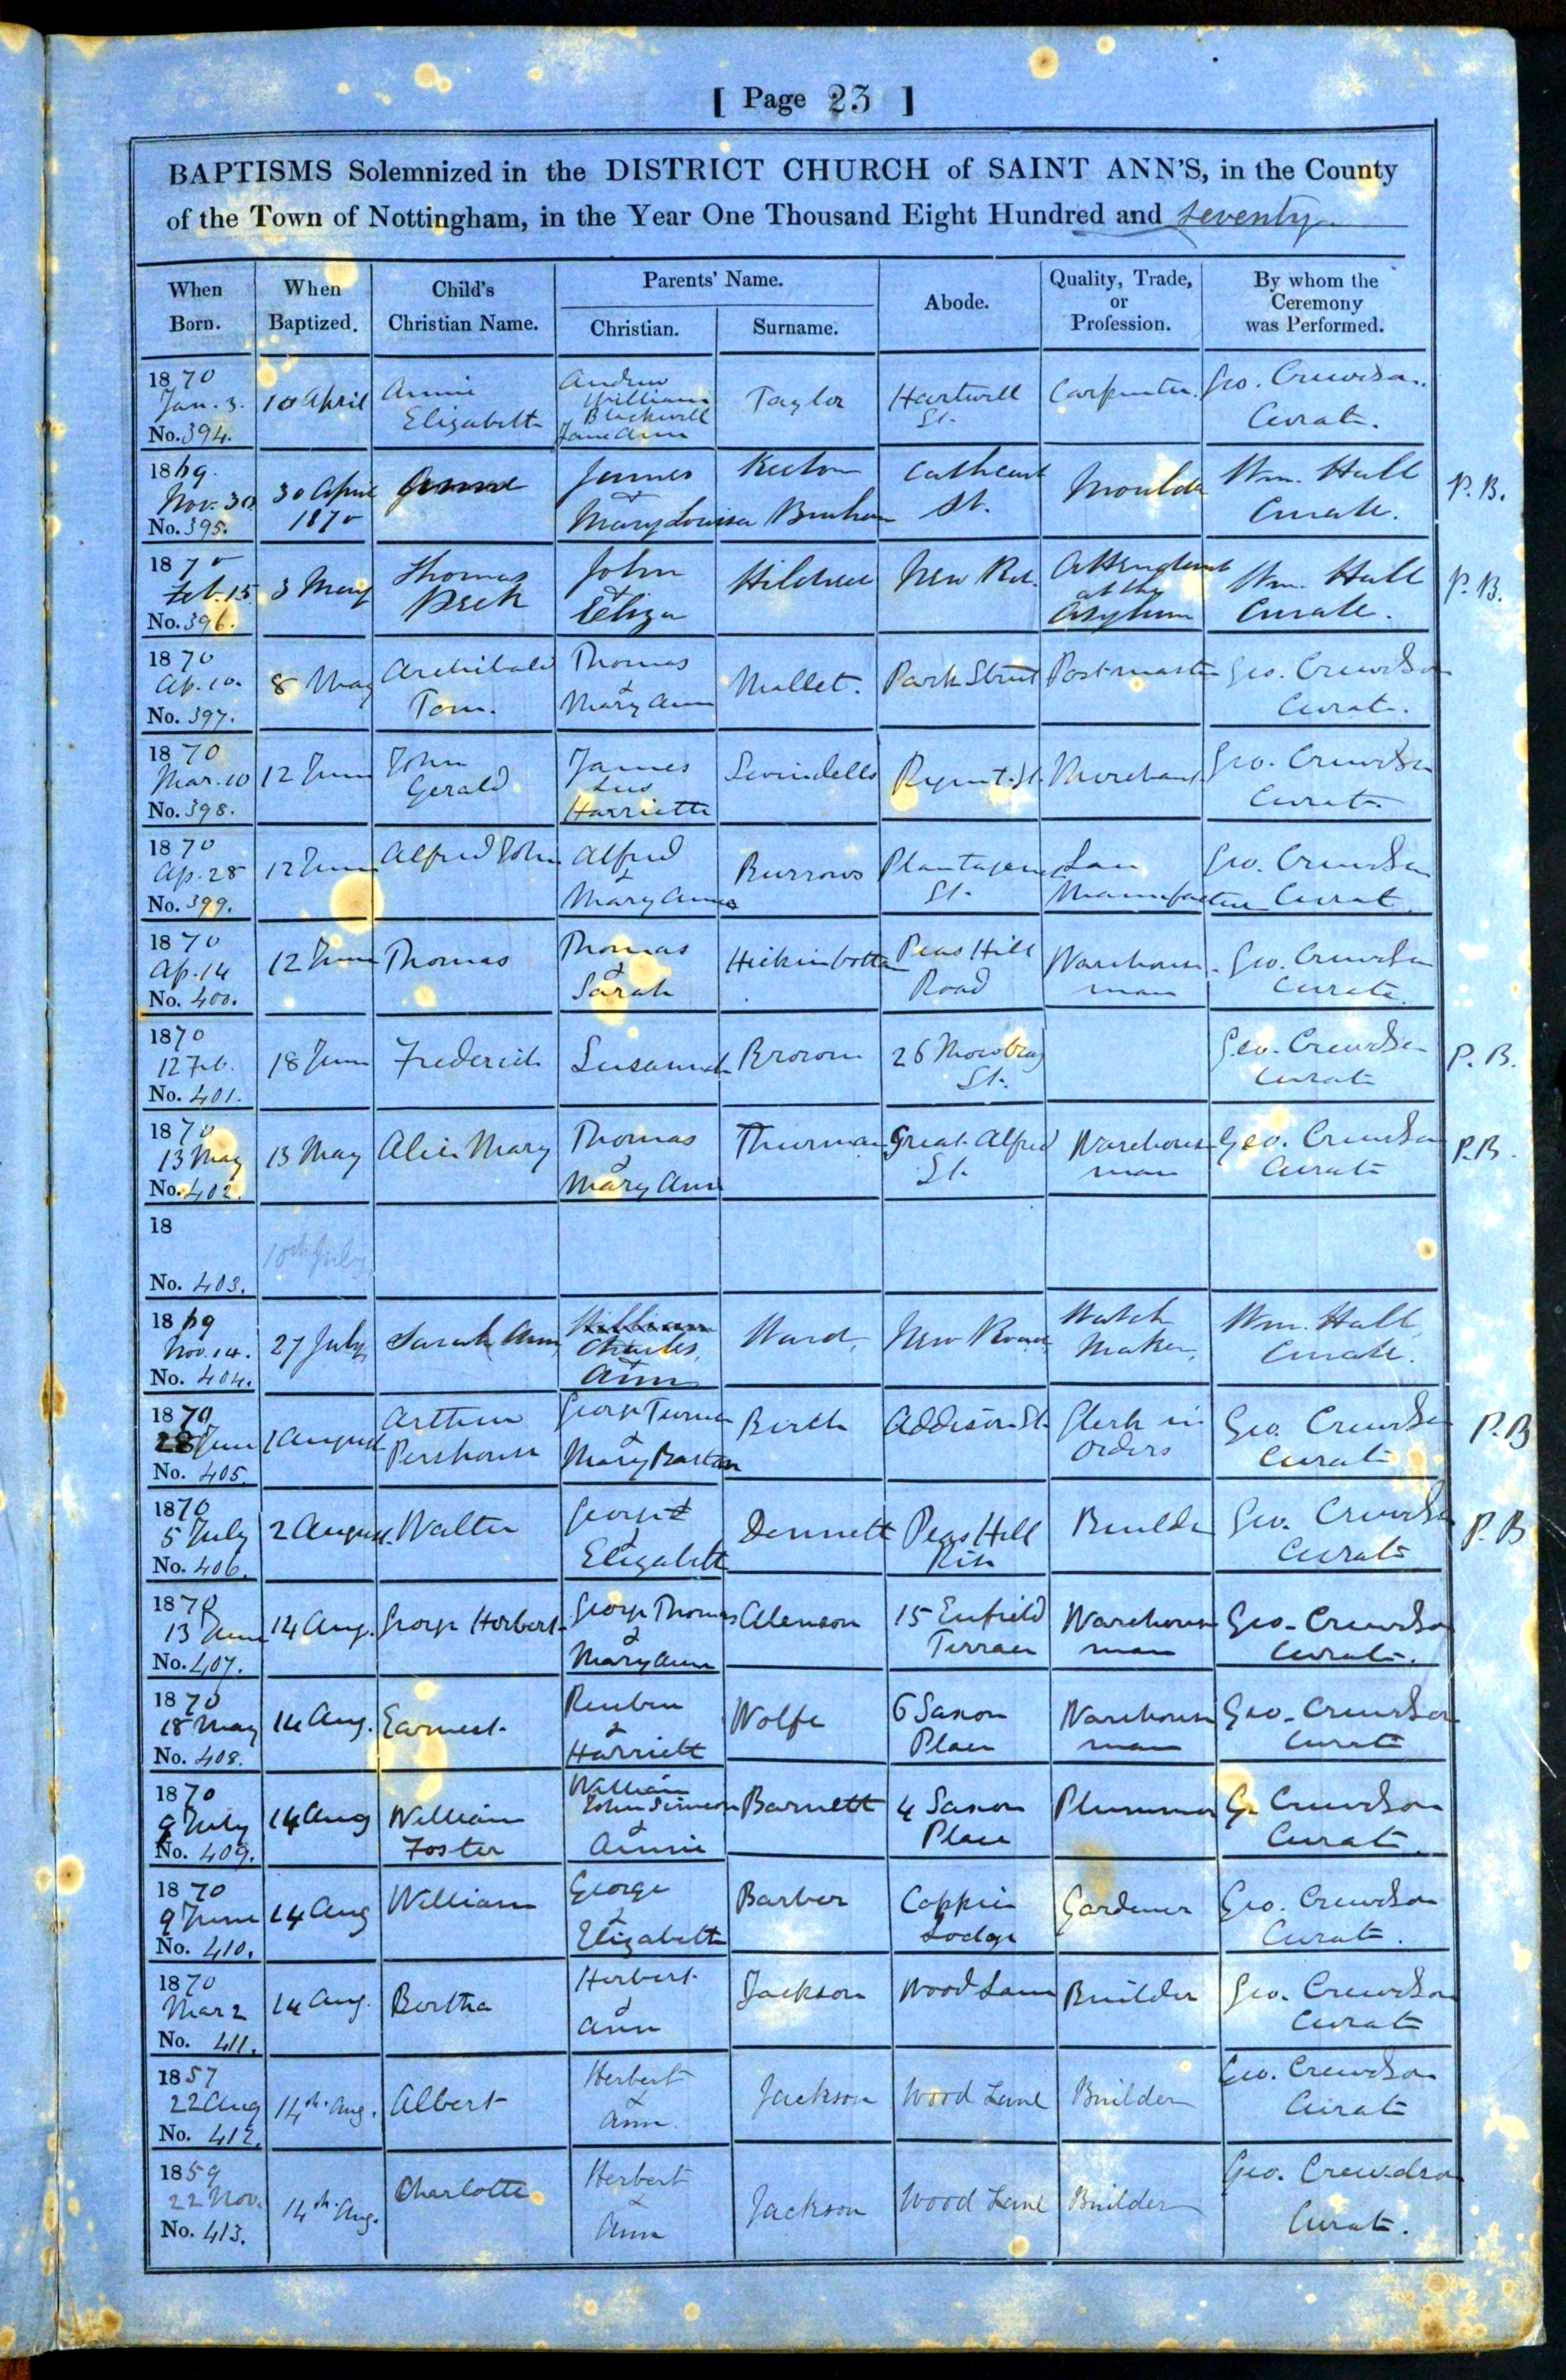 [ Page 23 ]
BAPTISMS Solemnized in the DISTRICT CHURCH of SAINT ANN'S, in the County
of the Town of Nottingham, in the Year One Thousand Eight Hundred and Seventy
When Born. When Baptized. Child's Christian Name. Parents' Name. Christian. Surname. Abode. Quality, Trade, or Profession. By whom the Ceremony was Performed.
1870 Jan. 3. No. 394. 10 April Annie Elizabeth Andrew William Blackwell Jane Ann Taylor Hartwell St. Carpenter. Geo. Crewdson. Curate.
1869. Nov. 30 No. 395. 30 April 1870 James & Mary Louisa Keeton Cathcart St. Moulder Wm. Hall Curate. P.B.
1870 Feb. 15. No. 396. 3 May Thomas Peck John & Eliza New Rd. Attendant at the Asylum Wm. Hall Curate. P.B.
1870 Ap. 10. No. 397. 8 May Archibald Tom. Thomas & Mary Ann Mallet. Park Street Postmaster Geo. Crewdson Curate.
1870 Mar. 10 No. 398. 12 June John Gerald James Harriette Swindells Regent St. Merchant Geo. Crewdson Curate.
1870 Ap. 28 No. 399. 12 June Alfred John Alfred & Mary Anne Burrows Plantagenet St. Lace Manufacturer Geo. Crewdson Curate.
1870 Ap. 14 No. 400. 12 June Thomas Thomas & Sarah Hickinbottom Peas Hill Road Warehouse- man Geo. Crewdson Curate.
1870 12 Feb. No. 401. 18 June Frederick Susannah Brown 26 Mowbray St. Geo. Crewdson Curate P.B.
1870 13 May No. 402. 13 May Alice Mary Thomas & Mary Ann Thurman Great Alfred St. Warehouse man Geo. Crewdson Curate P.B.
18 No. 403. 10th July
1869 Nov. 14. No. 404. 27 July, Sarah Ann, William Charles, & Ann Ward, New Road, Watch Maker, Wm. Hall, Curate.
1870 28 June No. 405. 1 August Arthur Pershouse George Turner & Mary Barton Birch Addison St. Clerk in Orders Geo. Crewdson Curate P.B
1870 5 July No. 406. 2 August. Walter George & Elizabeth Dennett Peas Hill Rise Builder Geo. Crewdson Curate P.B
1870 13 June No. 407. 14 Aug. George Herbert George Thomas & Mary Ann Alenson 15 Enfield Terrace Warehouse man Geo. Crewdson Curate.
1870 18 May No. 408. 14 Aug. Earnest Reuben & Harriett Wolfe 6 Saxon Place Warehouse man Geo. Crewdson Curate
1870 9 July No. 409. 14 Aug William Foster William John Simeon & Annie Barnett 4 Saxon Place Plummer G. Crewdson Curate.
1870 9 June No. 410. 14 Aug William George & Elizabeth Barber Coppice Lodge Gardener Geo. Crewdson Curate.
1870 Mar 2 No. 411. 14 Aug. Bertha Herbert & Ann Jackson Wood Lane Builder Geo. Crewdson Curate
1857 22 Aug No. 412. 14th. Aug. Albert Herbert & Ann. Jackson Wood Lane Builder Geo. Crewdson Curate
1859 22 Nov. No. 413. 14th. Aug. Charlotte Herbert & Ann Jackson Wood Lane Builder Geo. Crewdson Curate.